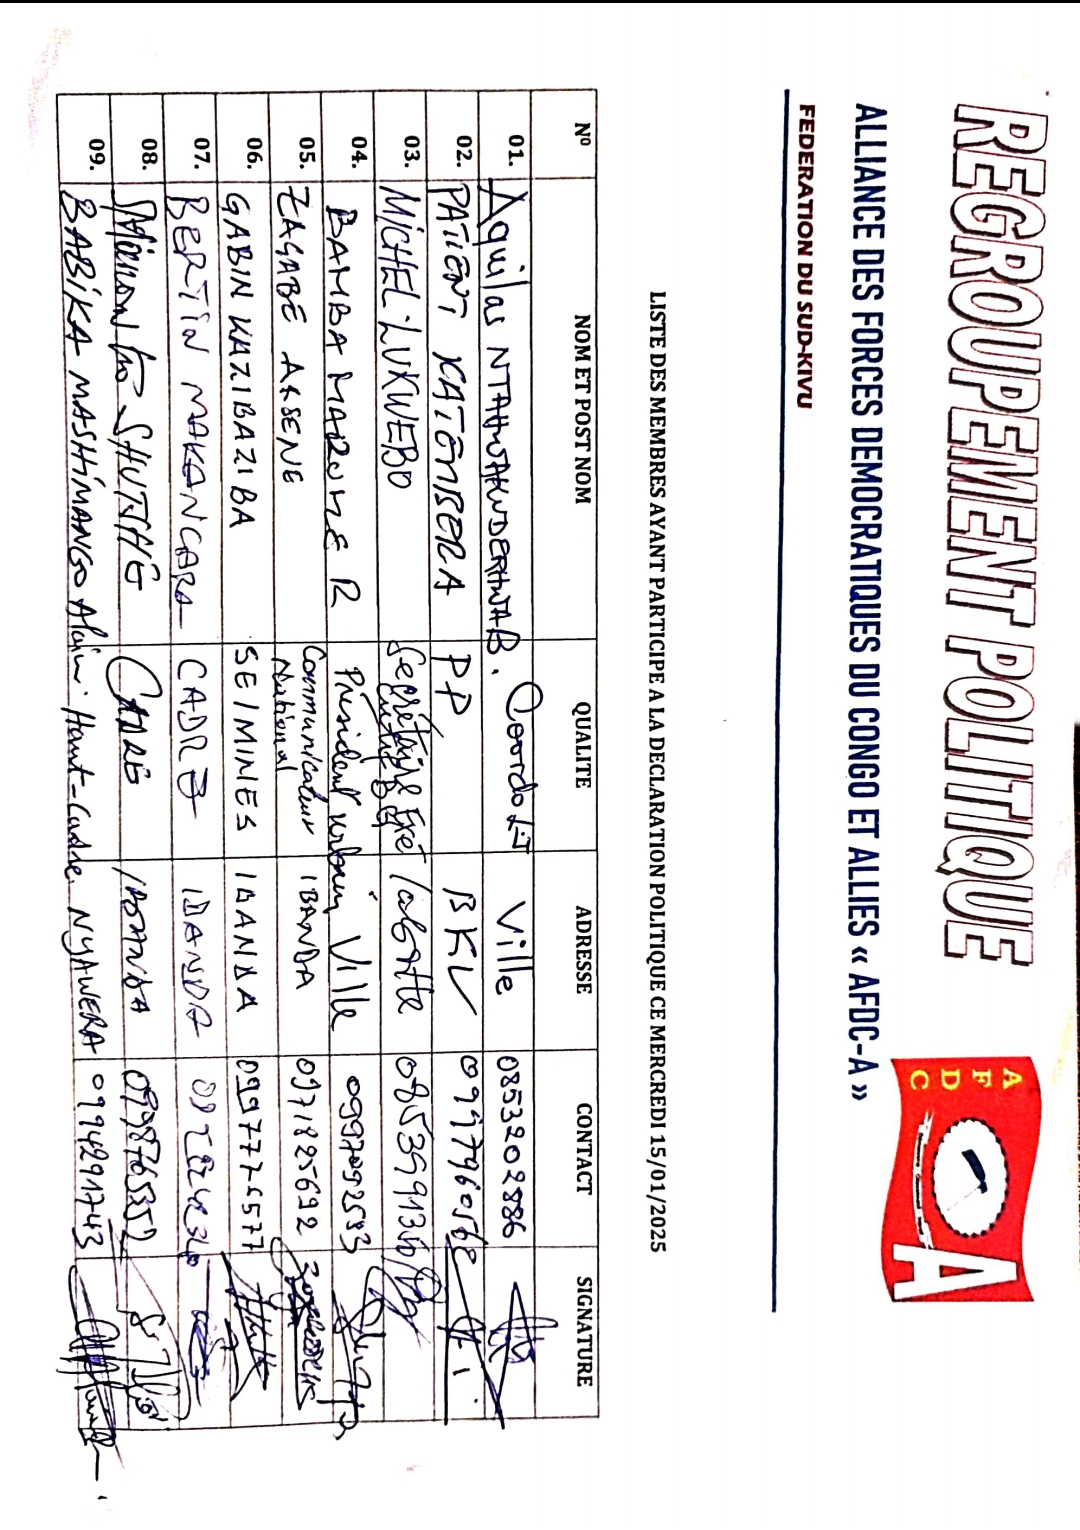 REGROUPEMENT POLITIQUE
ALLIANCE DES FORCES DEMOCRATIQUES DU CONGO ET ALLIES « AFDC-A »
FEDERATION DU SUD-KIVU
A F D C A
LISTE DES MEMBRES AYANT PARTICIPE A LA DECLARATION POLITIQUE CE MERCREDI 15/01/2025
N° NOM ET POST NOM QUALITE ADRESSE CONTACT SIGNATURE
01. Aquilas B. Ville 0853202886
02. PATIENT KATEMBERA PP BKV
03. MICHEL LUKWEBO Secrétaire Labotte 0853991360
04. BAMBA MARUME R Président urbain Ville 0997092583
05. ZAGABE ARSENE Communicateur National IBANDA 0971825692
06. GABIN KAZIBAZIBA SE/MINES IBANDA 0997775577
07. BERTIN MAKANGARA CADRE IBANDA
08. CADRE IBANDA
09. BABIKA MASHIMANGO Alain Haut-Cadre NYAWERA 0994291743